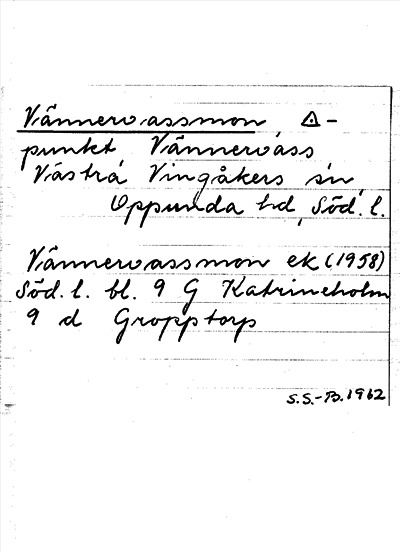 Vännervassmon △-
punkt Vännervass
Västra Vingåkers sn,
Oppunda hd, Söd. l.
Vännervassmon ek (1958)
Söd. l. bl. 9 G Katrineholm
9 d Gropptorp
S.S.-B. 1962